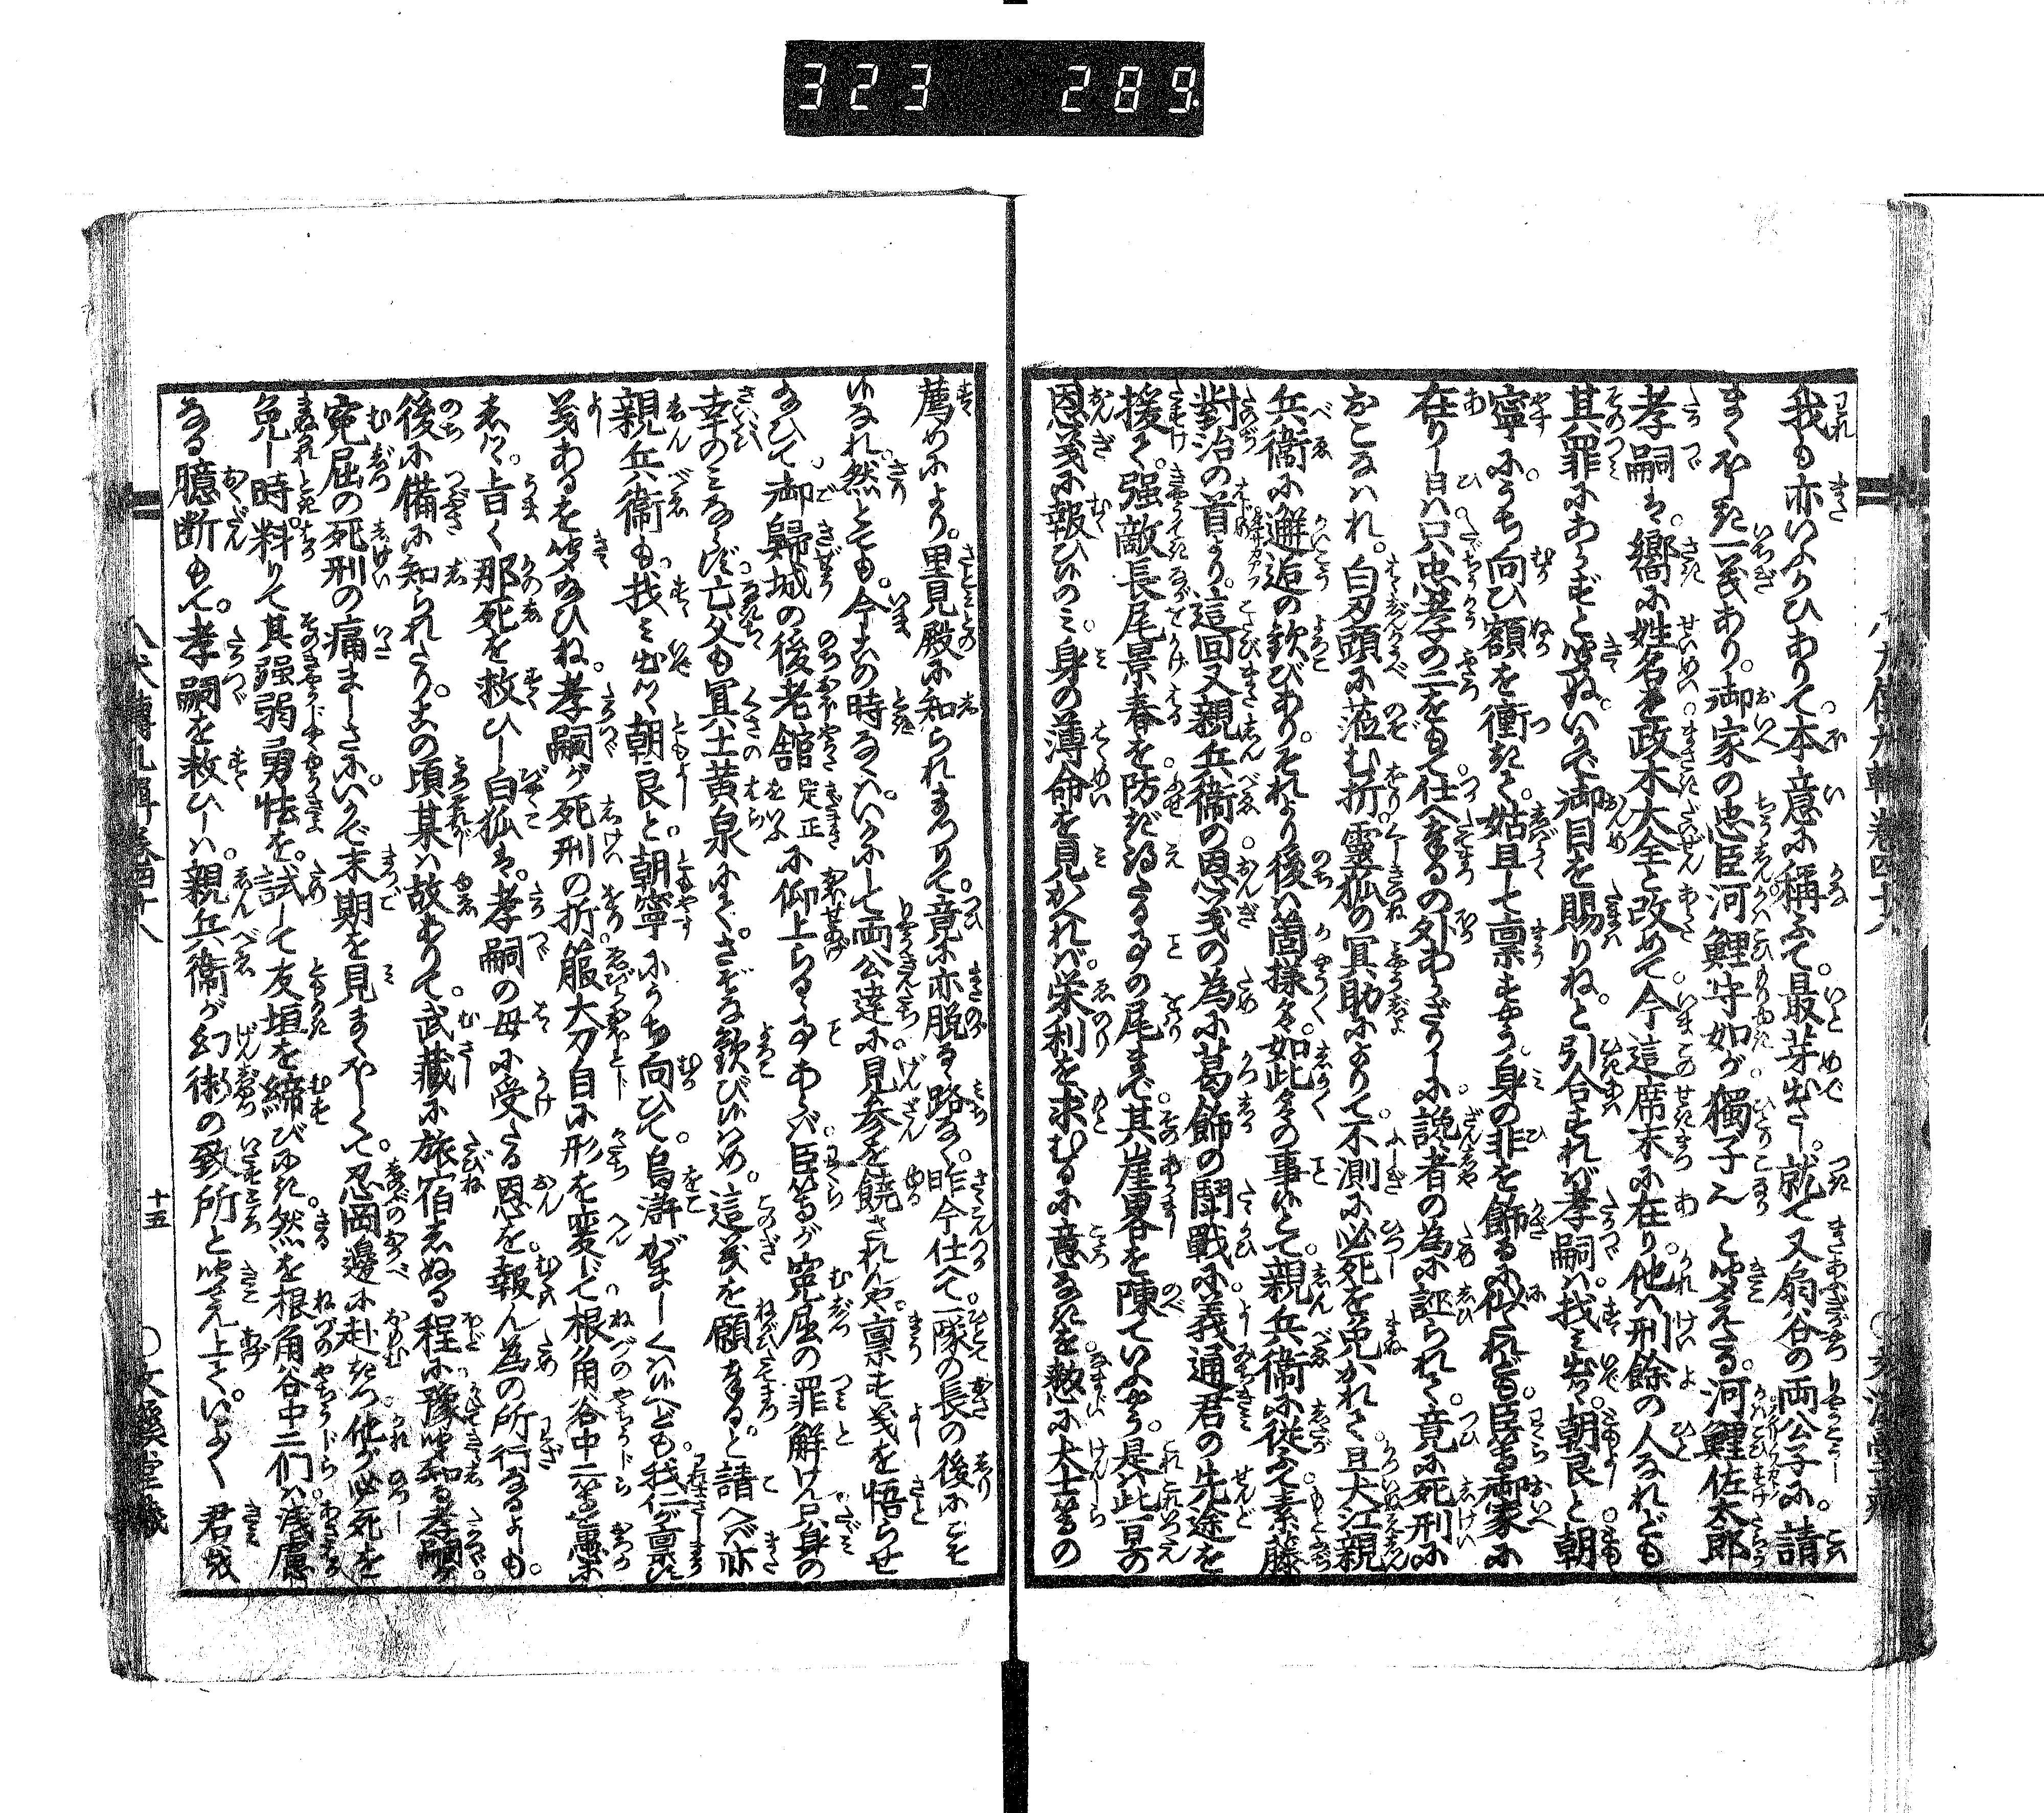 323 289
我も亦いふよひありて本意に稱ふて最芽出さし。就て又扇谷の両公子に。請
まくほしき一義あり。御家の忠臣河鯉守如が獨子んと聞えたる。河鯉佐太郎
孝嗣は。嚮に姓名を政木大全と改めて今這席末に在り。他は刑餘の人なれども
其罪にあらずと聞ぬ。いかで御目を賜りねと引合すれば孝嗣は找み出て。朝良と朝
寧に。うち向ひ額を衝きて。姑且して禀すやう。身の非を飾るに似たれども。臣等御家に
在りし日は只忠孝の二をもて仕へまつるの外あらざりしに。讒者の為に誣られて。竟に死刑に
おこなはれ。白刃頭に莅む折。靈狐の冥助によりて不測に必死を免かれて。且犬江親
兵衛に邂逅の歓びあり。それより後は箇様々々。如此々々の事にて。親兵衛に従ふて素藤
對治の首より。這回又親兵衛の恩義の為に葛飾の鬪戰に。義通君の先途を
援て。强敵長尾景春を防ぎ得たる事の尾まで。其崖畧を陳ていふやう。是は此一旦の
恩義に報ひしのみ。身の薄命を見かへれば。栄利を求むるに意なきを。慗に犬士等の
薦めにより。里見殿に知られまつりて。竟に亦脱る路なく。昨今仕へて一隊の長の後にこそ
侍なれ。然とても。今この時ならで。いかにして両公達に見参を饒されんや。禀す義を悟らせ
給ひて。御歸城の後老舘定正に仰上らるゝ事あらば。臣等が寃屈の罪解けて只身の
幸のみならず。亡父も冥土黄泉にて。さぞな歓び侍らめ。這義を願まつる。と請へば亦
親兵衛も。找み出て朝良と。朝寧にうち向ひて。烏滸がましくは侍れども。我们が禀す
義あるを聞給ひね。孝嗣が死刑の折。箙大刀自に形を変じて根角谷中二等を惑
しは。旨く那死を救ひし白狐は。孝嗣の母に受たる恩を報ん為の所行なるよしも。
後に備に知られたり。その頃某は故ありて。武藏に旅宿しぬる程に。豫聞知る孝嗣が。
寃屈の死刑の痛ましさに。いかで末期を見まくほしくて。忍岡邊に赴きつ他が必死を
免し時。料りて其强弱勇怯を。試して友垣を締び侍りき。然を根角谷中二们は淺慮
なる臆断もて。孝嗣を救ひしは。親兵衛が幻術の致所と聞え上て。いよゝく君を
十五